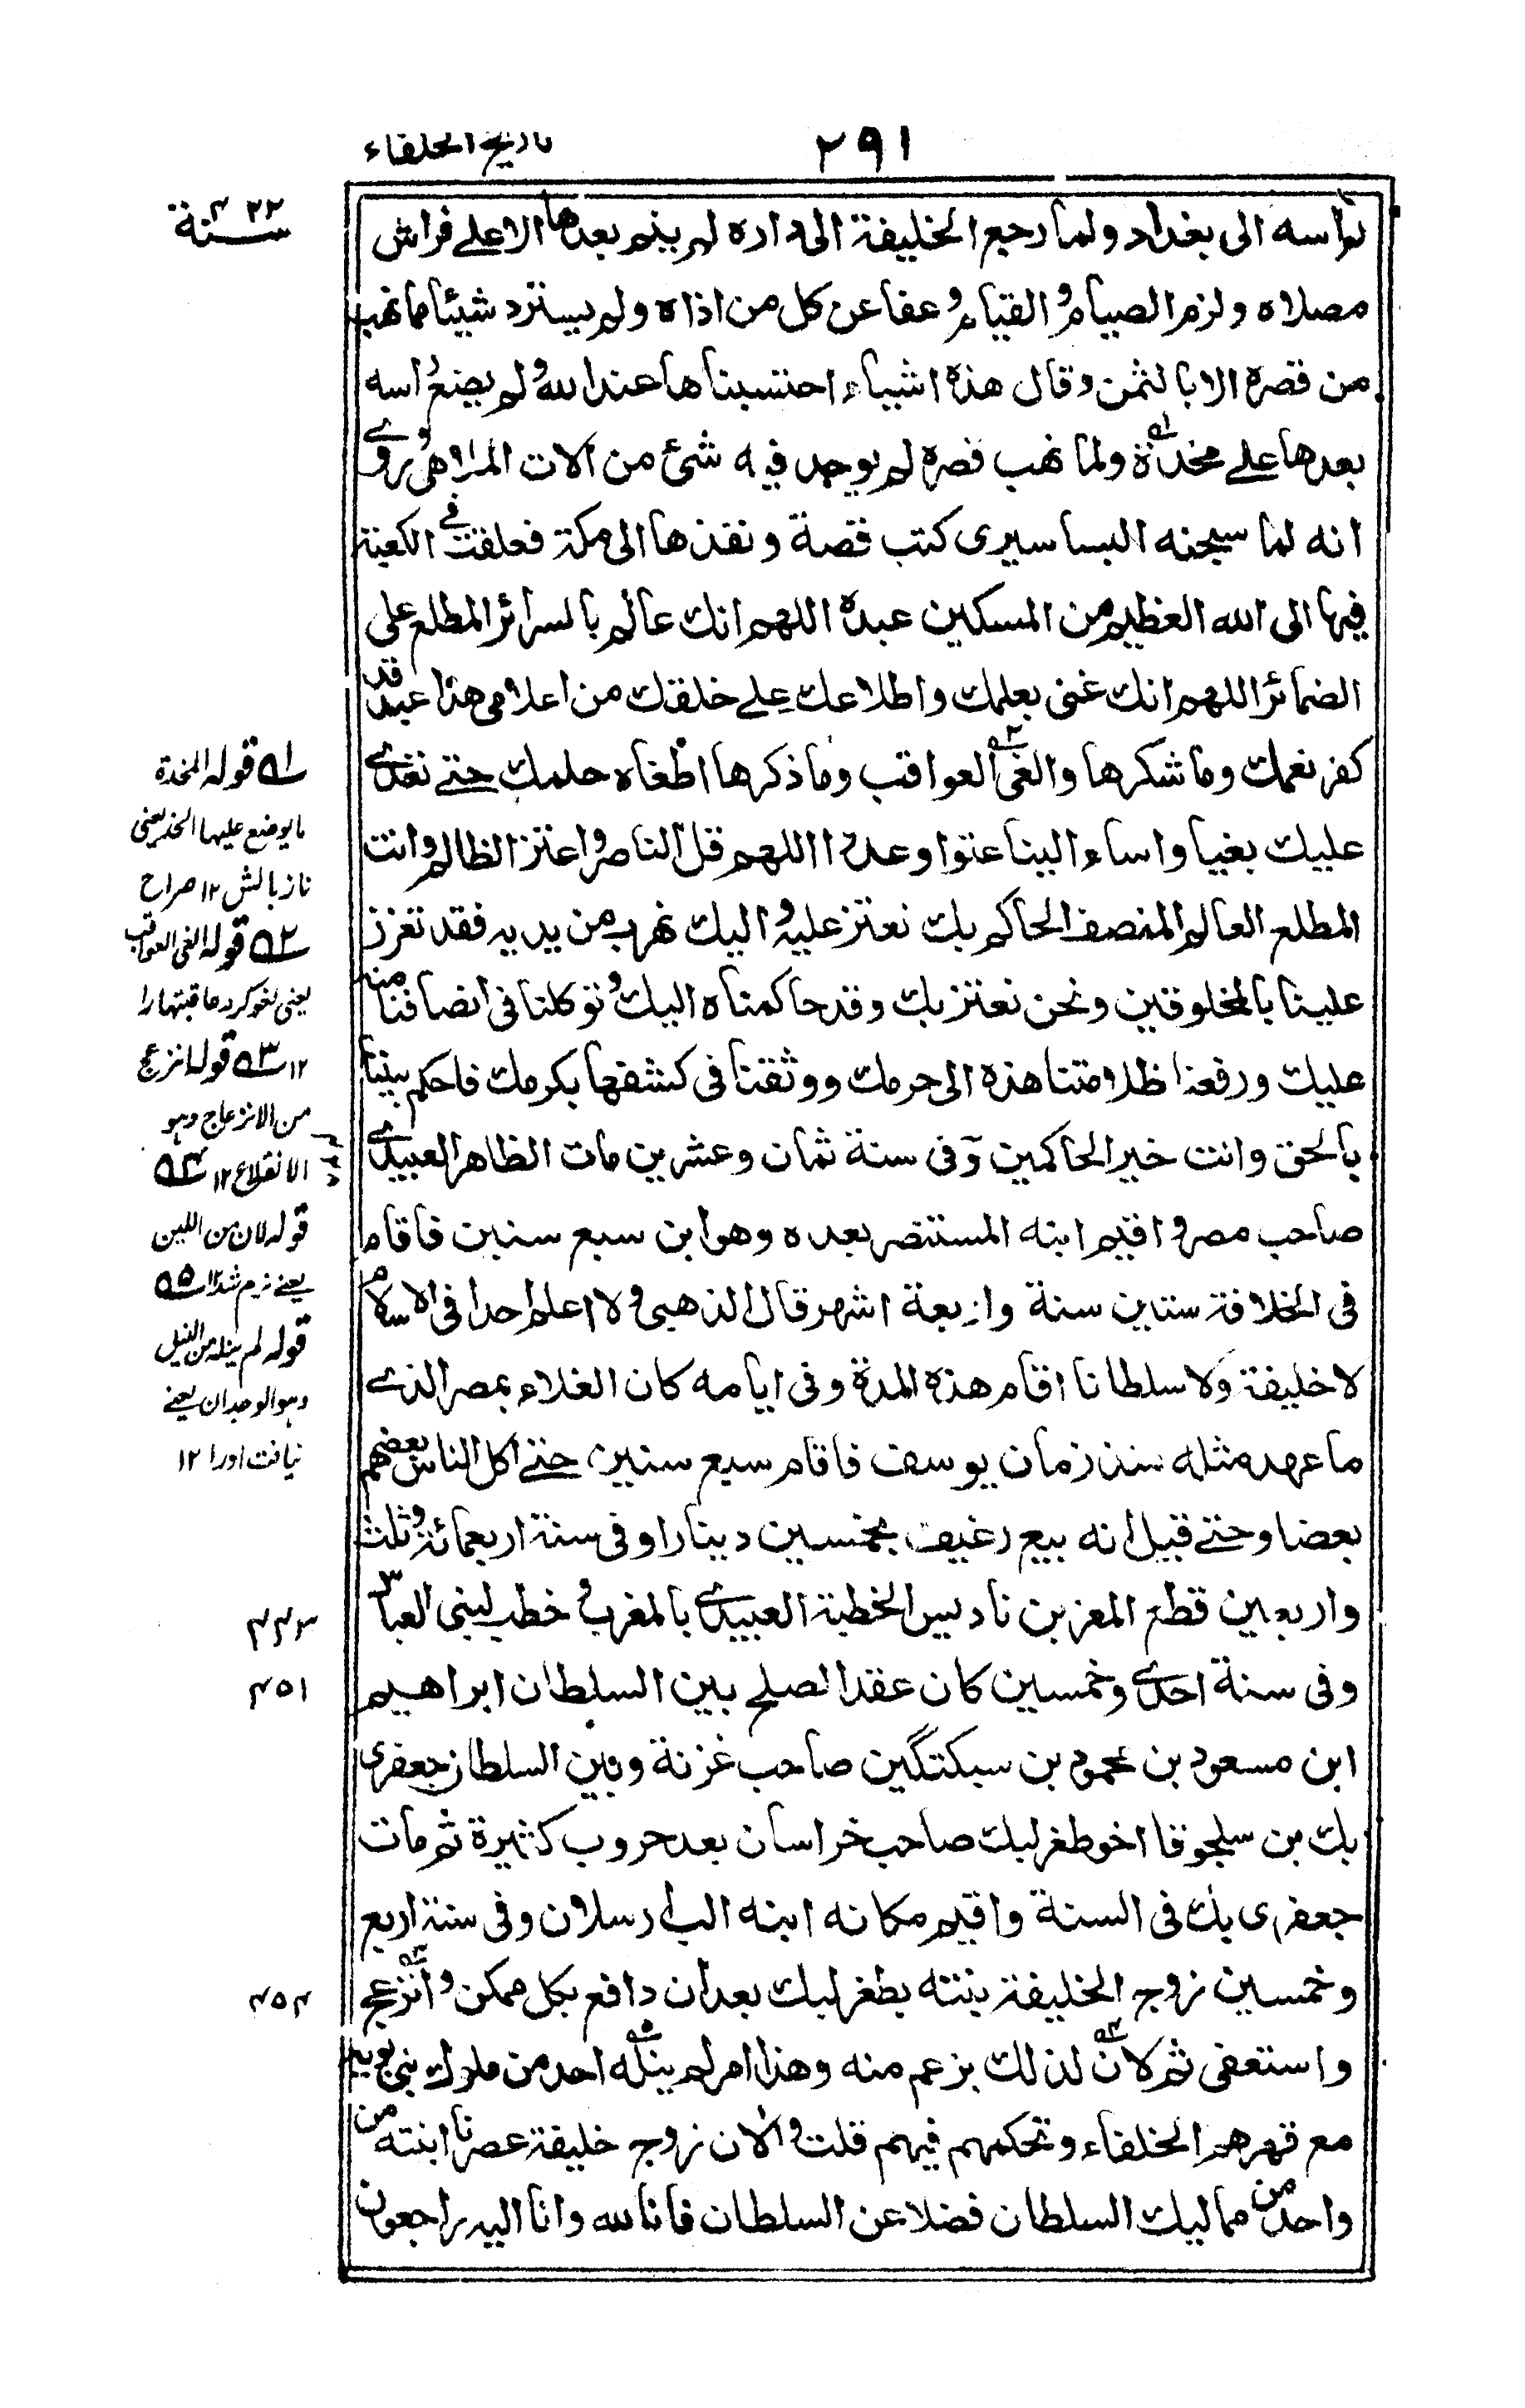 ٢٩١
تاريخ الخلفاء
سنة ٤٢٢
براسه الى بغداد ولما رجع الخليفة الى داره لم ينم بعدها الا على فراش
مصلاه ولزم الصيام والقيام وعفا عن كل من اذاه ولم يسترد شيئا مما نهب
من قصره الا بالثمن وقال هذه اشياء احتسبناها عند الله ولم يضع راسه
بعدها على مخدة ولما نهب قصره لم يوجد فيه شئ من آلات الملاهى وروى
انه لما سجنه البساسيرى كتب قصة ونفذها الى مكة فعلقت فى الكعبة
فيها الى الله العظيم من المسكين عبده اللهم انك عالم بالسرائر المطلع على
الضمائر اللهم انك غنى بعلمك واطلاعك على خلقك من اعلامى هذا عبد قد
كفر نعمك وما شكرها والغى العواقب وما ذكرها اطغاه حلمك حتى تعدى
علينا بغيا واساء الينا عتوا وعدوا اللهم قل الناصر واعتز الظالم وانت
المطلع العالم المنصف الحاكم بك نعتز عليه واليك نهرب من يديه فقد تعزز
علينا بالمخلوقين ونحن نعتز بك وقد حاكمناه اليك وتوكلنا فى انصافنا منه
عليك ورفعنا ظلامتنا هذه الى حرمك ووثقنا فى كشفها بكرمك فاحكم بيننا
بالحق وانت خير الحاكمين وفى سنة ثمان وعشرين مات الظاهر العبيدى
صاحب مصر واقيم ابنه المستنصر بعده وهو ابن سبع سنين فاقام
فى الخلافة ستين سنة واربعة اشهر قال الذهبى ولا اعلم احدا فى الاسلام
لا خليفة ولا سلطانا اقام هذه المدة وفى ايامه كان الغلاء بمصر الذى
ما عهد مثله منذ زمان يوسف فاقام سبع سنين حتى اكل الناس بعضهم
بعضا وحتى قيل انه بيع رغيف بخمسين دينارا وفى سنة اربعمائة وثلث
واربعين قطع المعز بن ناديس الخطبة العبيدى بالمغرب وخطب لبنى العباس
وفى سنة احدى وخمسين كان عقد الصلح بين السلطان ابراهيم
ابن مسعود بن محمود بن سبكتگين صاحب غزنة وبين السلطان جعفرى
بك بن سلجوقا اخو طغرلبك صاحب خراسان بعد حروب كثيرة ثم مات
جعفرى بك فى السنة واقيم مكانه ابنه الب ارسلان وفى سنة اربع
وخمسين زوج الخليفة بنته بطغرلبك بعد ان دافع بكل ممكن وانزعج
واستعفى ثم لان لذلك بزعم منه وهذا امر لم ينله احد من ملوك بنى بويه
مع قهرهم الخلفاء وتحكمهم فيهم قلت والآن زوج خليفة عصرنا ابنته من
واحد من مماليك السلطان فضلا عن السلطان فانا لله وانا اليه راجعون
٤٤٣
٤٥١
٤٥٤
له ١ قوله المخدة
ما يوضع عليها الخد يعنى
ناز بالش ١٢ صراح
له ٢ قوله الغى العواقب
يعنى لغو كرد عاقبتها را
١٢ له ٣ قوله انزعج
من الانزعاج وهو
الانقلاع ١٢ له ٤
قوله لان من اللين
يعنى نرم شد ١٢ له ٥
قوله لم ينله من النيل
وهو الوجدان يعنى
نيافت اورا ١٢